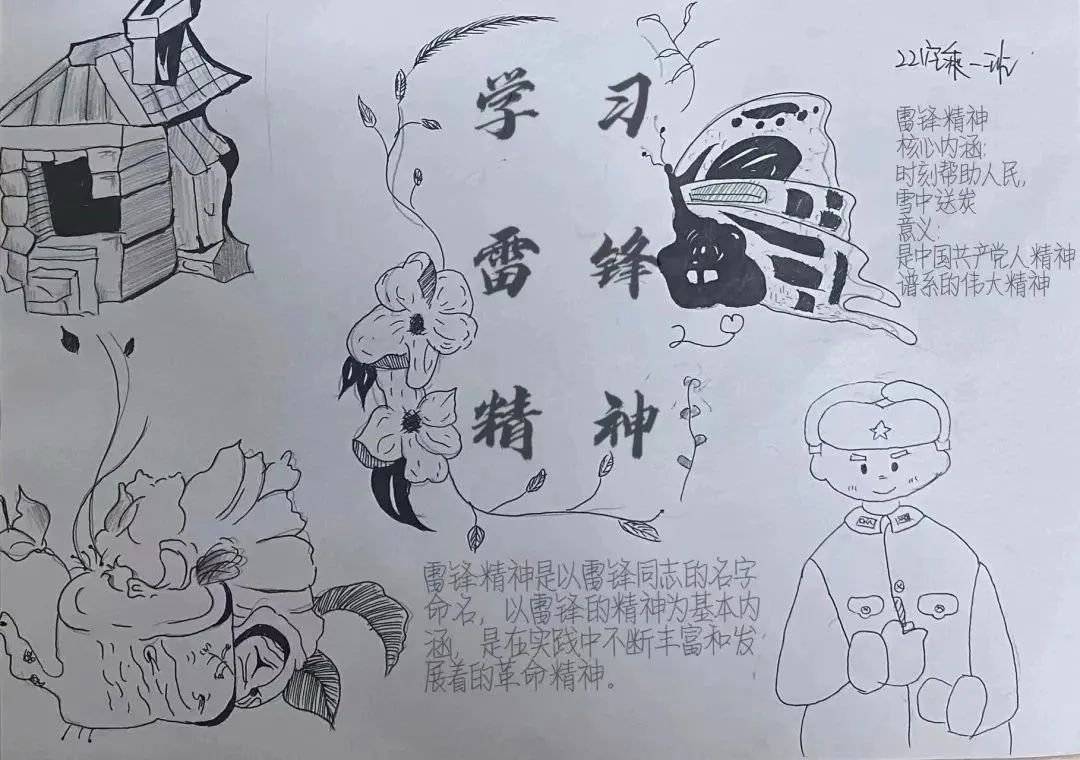 学习
雷锋
精神
22空乘一班
雷锋精神
核心内涵:
时刻帮助人民,
雪中送炭
意义:
是中国共产党人精神
谱系的伟大精神
雷锋精神是以雷锋同志的名字
命名，以雷锋的精神为基本内
涵，是在实践中不断丰富和发
展着的革命精神。